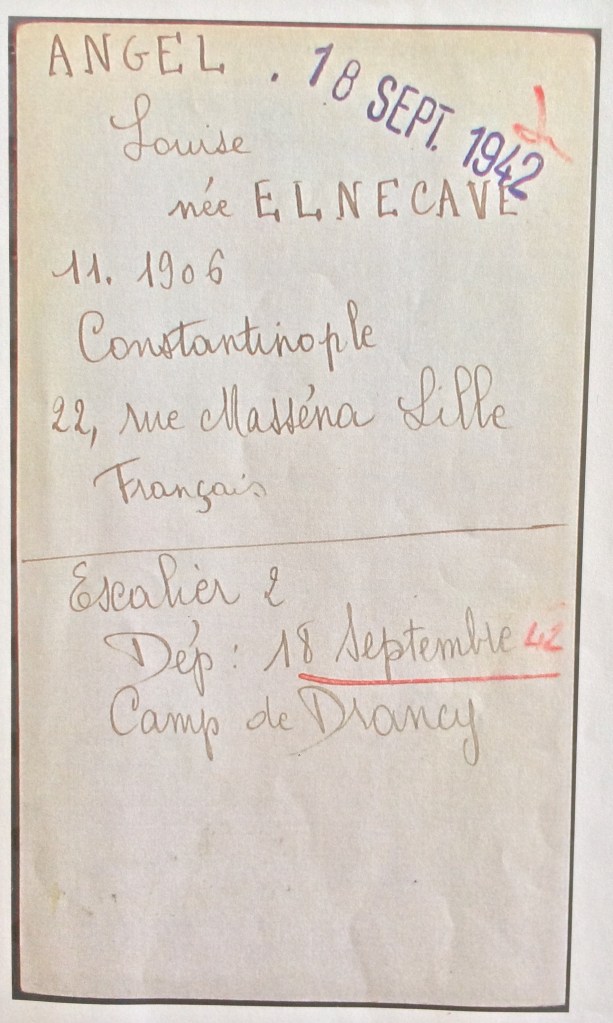 ANGEL . 18 SEPT. 1942
Louise
née ELNECAVE
11. 1906
Constantinople
22, rue Masséna Lille
Français
Escalier 2
Dép : 18 Septembre 42
Camp de Drancy